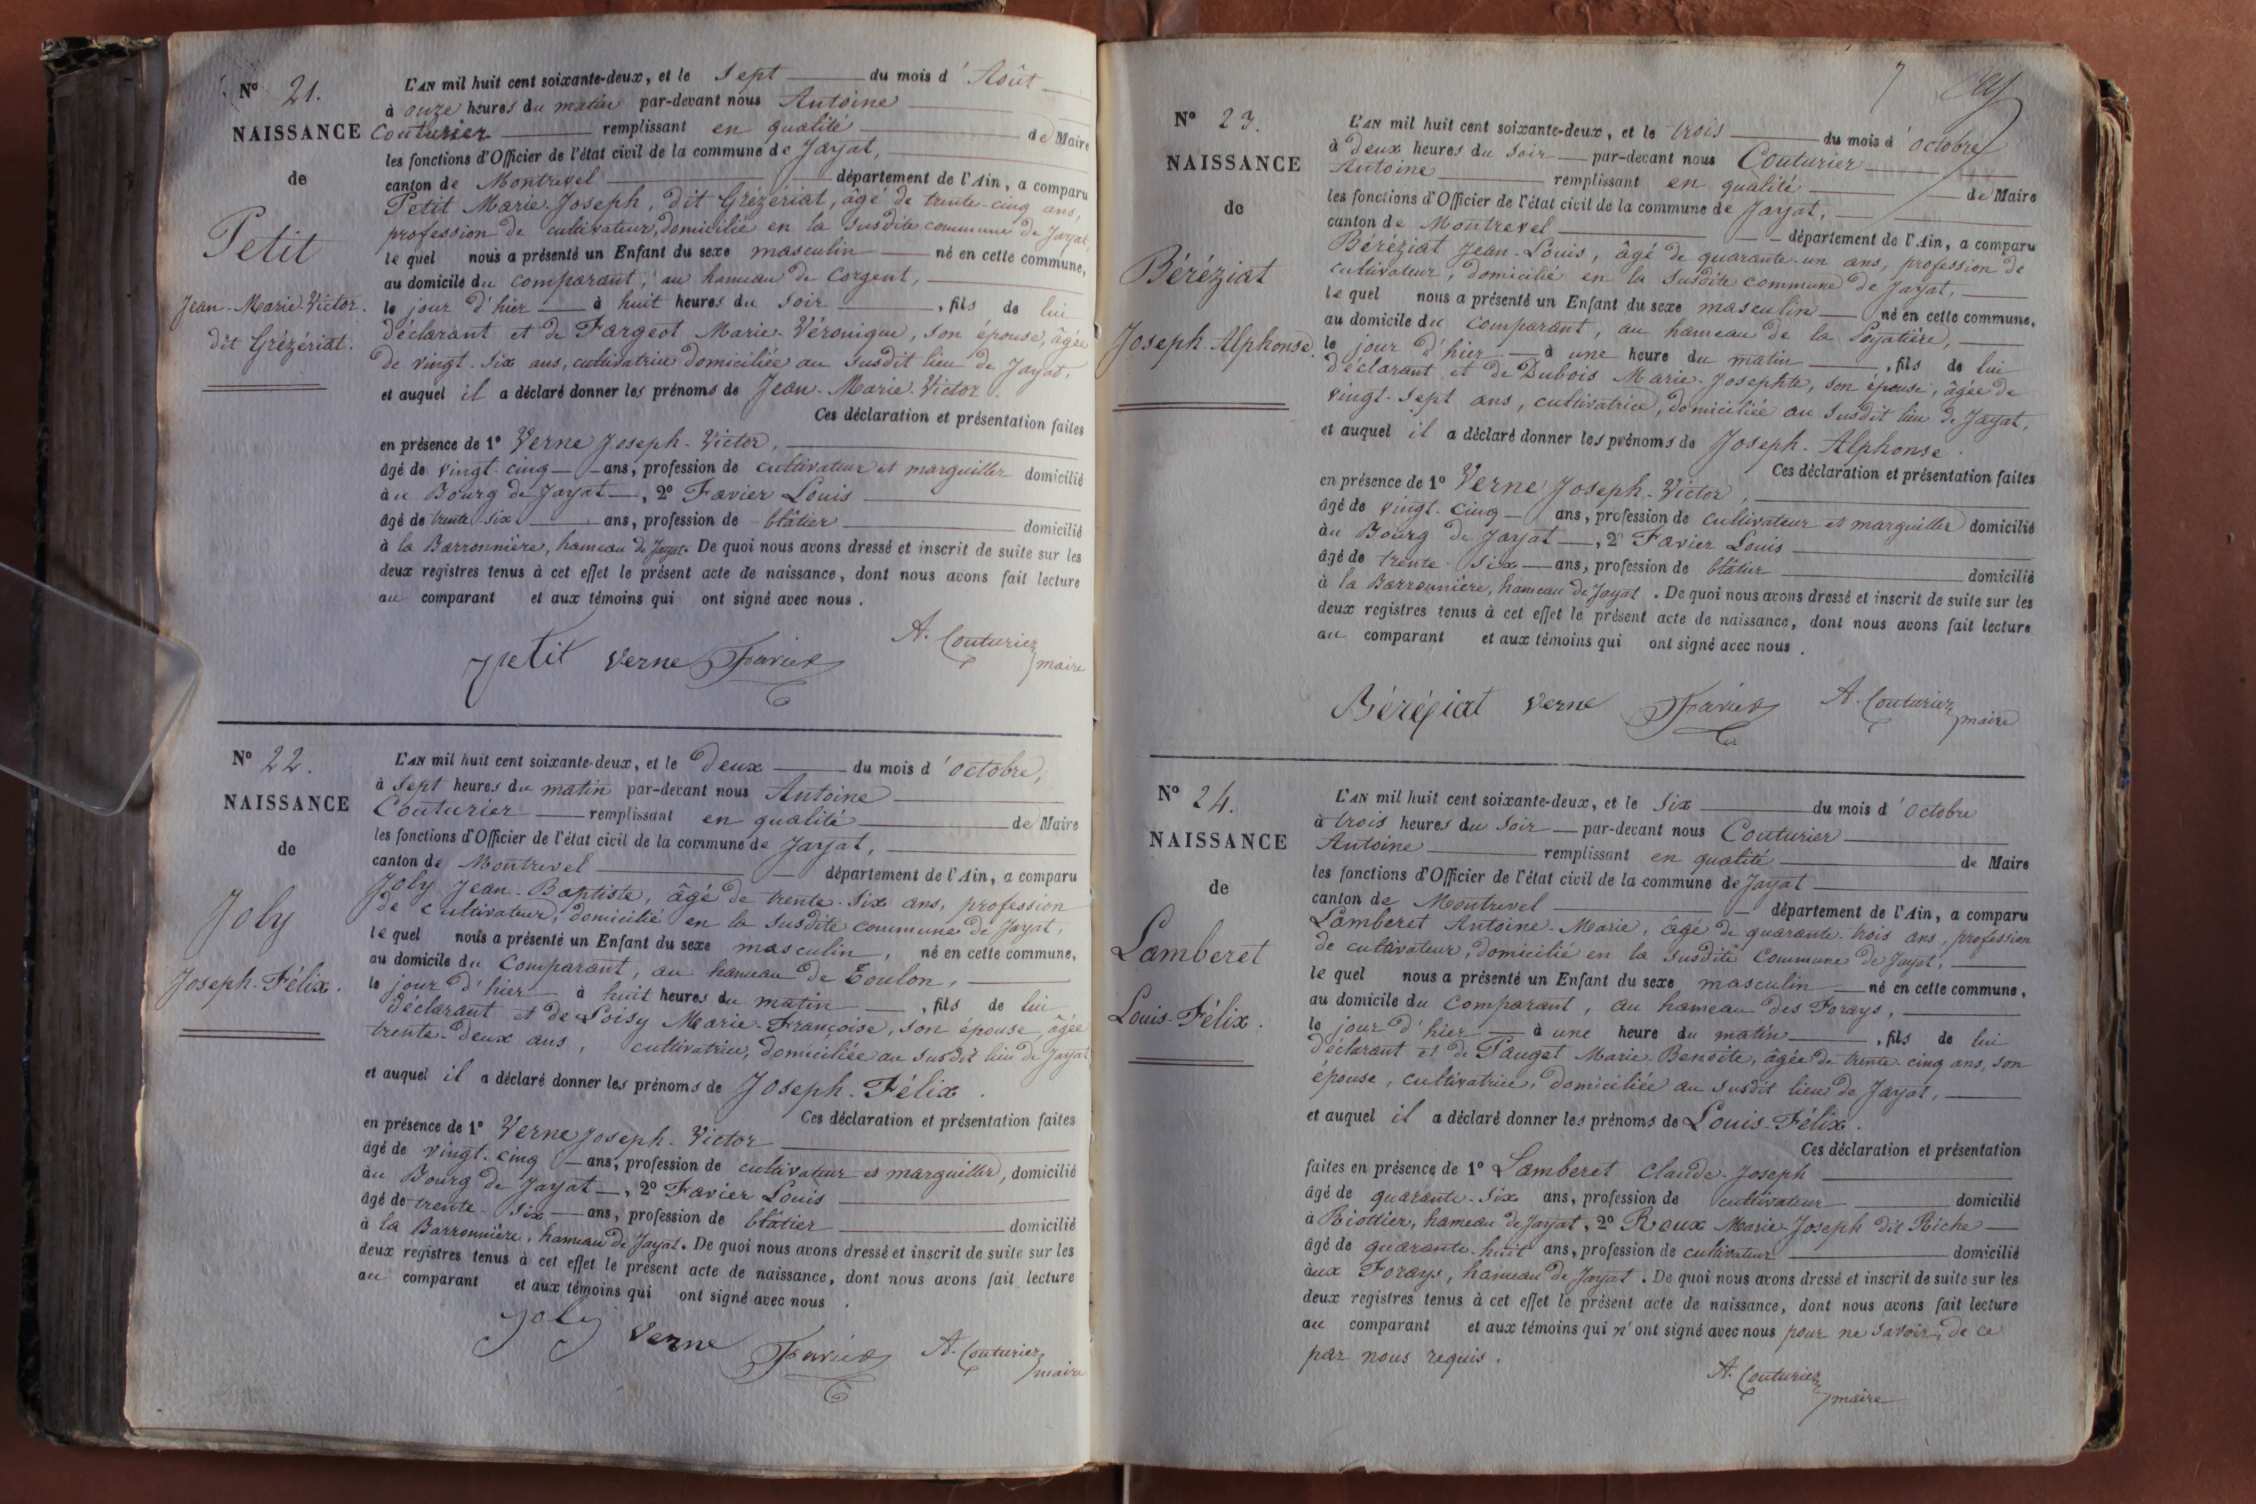 N° 21.
NAISSANCE
de
Petit
Jean-Marie-Victor.
dit Grézériat.
L'AN mil huit cent soixante-deux, et le sept du mois d'Août
à onze heures du matin par-devant nous Antoine
Couturier remplissant en qualité de Maire
les fonctions d'Officier de l'état civil de la commune de Jayat,
canton de Montrevel département de l'Ain, a comparu
Petit Marie-Joseph, dit Grézériat, âgé de trente-cinq ans,
profession de cultivateur, domicilié en la susdite commune de Jayat,
lequel nous a présenté un Enfant du sexe masculin né en cette commune,
au domicile du comparant, au hameau de Corgent,
le jour d'hier à huit heures du soir, fils de lui
déclarant et de Fargeot Marie-Véronique, son épouse, âgée
de vingt-six ans, cultivatrice domiciliée au susdit lieu de Jayat,
et auquel il a déclaré donner les prénoms de Jean-Marie-Victor.
Ces déclaration et présentation faites
en présence de 1° Verne Joseph-Victor,
âgé de vingt-cinq ans, profession de cultivateur et marguiller domicilié
au Bourg de Jayat, 2° Favier Louis
âgé de trente-six ans, profession de blâtier domicilié
à la Barronnière, hameau de Jayat. De quoi nous avons dressé et inscrit de suite sur les
deux registres tenus à cet effet le présent acte de naissance, dont nous avons fait lecture
au comparant et aux témoins qui ont signé avec nous.
Petit Verne Favier A. Couturier
maire
N° 22.
NAISSANCE
de
Joly
Joseph-Félix.
L'AN mil huit cent soixante-deux, et le deux du mois d'octobre,
à sept heures du matin par-devant nous Antoine
Couturier remplissant en qualité de Maire
les fonctions d'Officier de l'état civil de la commune de Jayat,
canton de Montrevel département de l'Ain, a comparu
Joly Jean-Baptiste, âgé de trente-six ans, profession
de cultivateur, domicilié en la susdite commune de Jayat,
lequel nous a présenté un Enfant du sexe masculin, né en cette commune,
au domicile du comparant, au hameau de Toulon,
le jour d'hier à huit heures du matin, fils de lui
déclarant et de Loisy Marie-Françoise, son épouse, âgée
trente-deux ans, cultivatrice, domiciliée au susdit lieu de Jayat
et auquel il a déclaré donner les prénoms de Joseph-Félix.
Ces déclaration et présentation faites
en présence de 1° Verne Joseph-Victor
âgé de vingt-cinq ans, profession de cultivateur et marguiller, domicilié
au Bourg de Jayat, 2° Favier Louis
âgé de trente-six ans, profession de blâtier domicilié
à la Barronnière, hameau de Jayat. De quoi nous avons dressé et inscrit de suite sur les
deux registres tenus à cet effet le présent acte de naissance, dont nous avons fait lecture
au comparant et aux témoins qui ont signé avec nous.
Joly Verne Favier A. Couturier
maire
7
N° 23.
NAISSANCE
de
Béréziat
Joseph-Alphonse.
L'AN mil huit cent soixante-deux, et le trois du mois d'octobre
à deux heures du soir par-devant nous Couturier
Antoine remplissant en qualité de Maire
les fonctions d'Officier de l'état civil de la commune de Jayat,
canton de Montrevel département de l'Ain, a comparu
Béréziat Jean-Louis, âgé de quarante-un ans, profession de
cultivateur, domicilié en la susdite commune de Jayat,
lequel nous a présenté un Enfant du sexe masculin né en cette commune,
au domicile du comparant, au hameau de la Poyatière,
le jour d'hier à une heure du matin, fils de lui
déclarant et de Dubois Marie-Josephte, son épouse, âgée de
vingt-sept ans, cultivatrice, domiciliée au susdit lieu de Jayat,
et auquel il a déclaré donner les prénoms de Joseph-Alphonse.
Ces déclaration et présentation faites
en présence de 1° Verne Joseph-Victor,
âgé de vingt-cinq ans, profession de cultivateur et marguiller domicilié
au Bourg de Jayat, 2° Favier Louis
âgé de trente-six ans, profession de blâtier domicilié
à la Barronnière, hameau de Jayat. De quoi nous avons dressé et inscrit de suite sur les
deux registres tenus à cet effet le présent acte de naissance, dont nous avons fait lecture
au comparant et aux témoins qui ont signé avec nous.
Béréziat Verne Favier A. Couturier
maire
N° 24.
NAISSANCE
de
Lamberet
Louis-Félix.
L'AN mil huit cent soixante-deux, et le six du mois d'octobre
à trois heures du soir par-devant nous Couturier
Antoine remplissant en qualité de Maire
les fonctions d'Officier de l'état civil de la commune de Jayat
canton de Montrevel département de l'Ain, a comparu
Lamberet Antoine-Marie, âgé de quarante-trois ans, profession
de cultivateur, domicilié en la susdite Commune de Jayat,
lequel nous a présenté un Enfant du sexe masculin né en cette commune,
au domicile du comparant, au hameau des Forays,
le jour d'hier à une heure du matin, fils de lui
déclarant et de Pauget Marie-Benoite, âgée de trente-cinq ans, son
épouse, cultivatrice, domiciliée au susdit lieu de Jayat,
et auquel il a déclaré donner les prénoms de Louis-Félix.
Ces déclaration et présentation
faites en présence de 1° Lamberet Claude-Joseph
âgé de quarante-six ans, profession de cultivateur domicilié
à Biottier, hameau de Jayat, 2° Roux Marie-Joseph dit Riche
âgé de quarante-huit ans, profession de cultivateur domicilié
aux Forays, hameau de Jayat. De quoi nous avons dressé et inscrit de suite sur les
deux registres tenus à cet effet le présent acte de naissance, dont nous avons fait lecture
au comparant et aux témoins qui n'ont signé avec nous pour ne savoir, de ce
par nous requis.
A. Couturier
maire